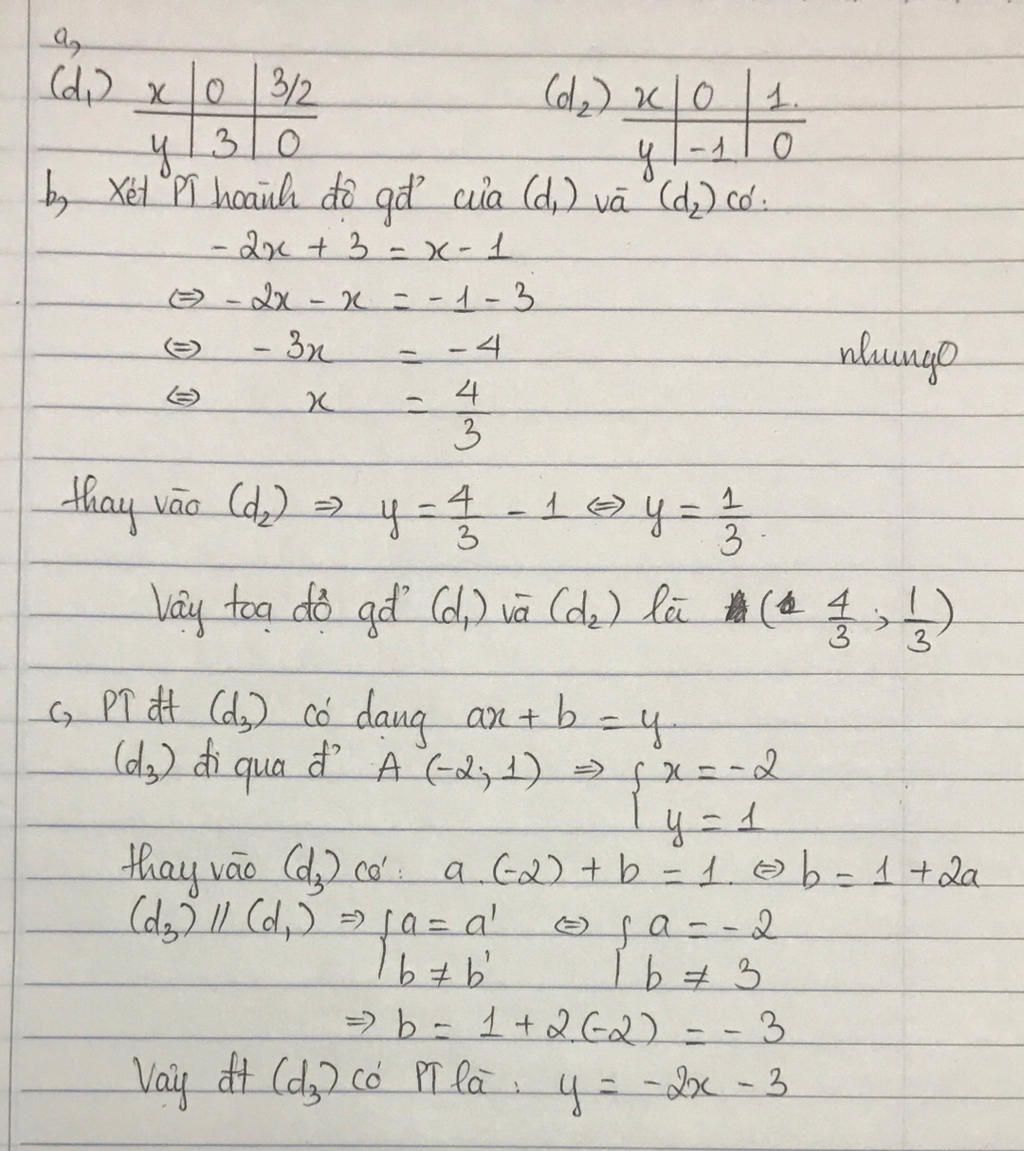 a,
(d₁) x | 0 | 3/2 (d₂) x | 0 | 1.
y | 3 | 0 y | -1 | 0
b, Xét PT hoành độ gđ' của (d₁) và (d₂) có:
-2x + 3 = x - 1
⇔ -2x - x = -1 - 3
⇔ -3x = -4
nhung0
⇔ x = 4/3
thay vào (d₂) ⇒ y = 4/3 - 1 ⇔ y = 1/3.
Vậy toạ độ gđ' (d₁) và (d₂) là (4/3; 1/3)
c, PT đt (d₃) có dạng ax + b = y.
(d₃) đi qua đ' A (-2; 1) ⇒ { x = -2
y = 1
thay vào (d₃) có: a.(-2) + b = 1. ⇔ b = 1 + 2a
(d₃) // (d₁) ⇒ { a = a' ⇔ { a = -2
b ≠ b' b ≠ 3
⇒ b = 1 + 2.(-2) = -3
Vậy đt (d₃) có PT là: y = -2x - 3